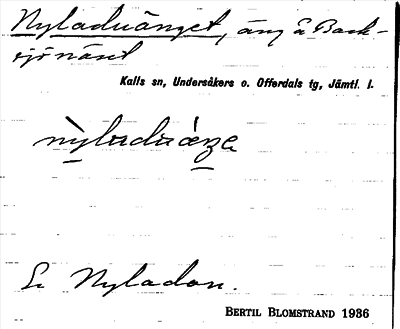 Nyladuänget, äng å Back-
sjönäset
Kalls sn, Undersåkers o. Offerdals tg, Jämtl. l.
nỳladuàŋe
Se Nyladan.
BERTIL BLOMSTRAND 1936